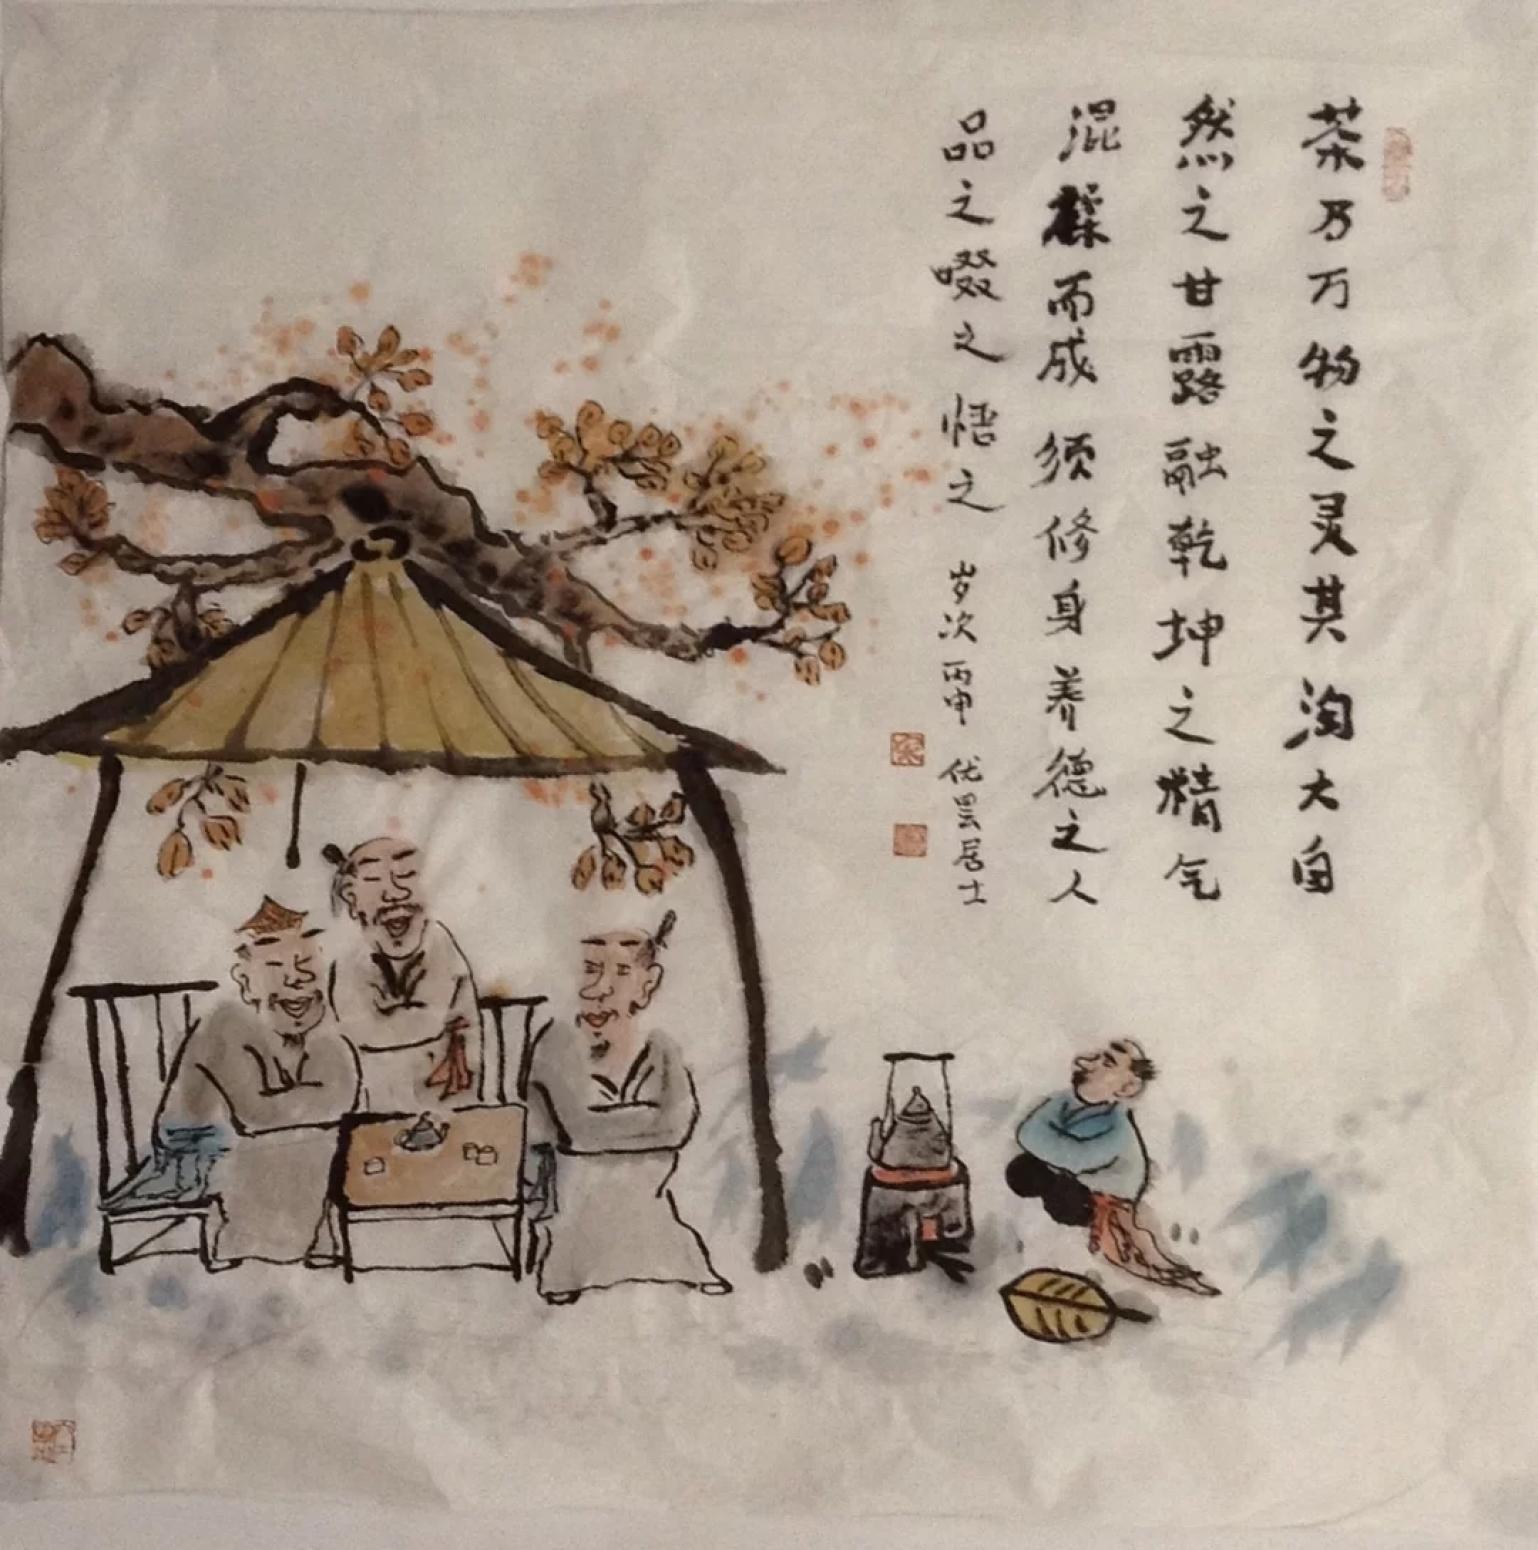 茶乃万物之灵其淘大自
然之甘露融乾坤之精气
混而成须修身养德之人
品之啜之悟之 岁次丙申 优昙居士